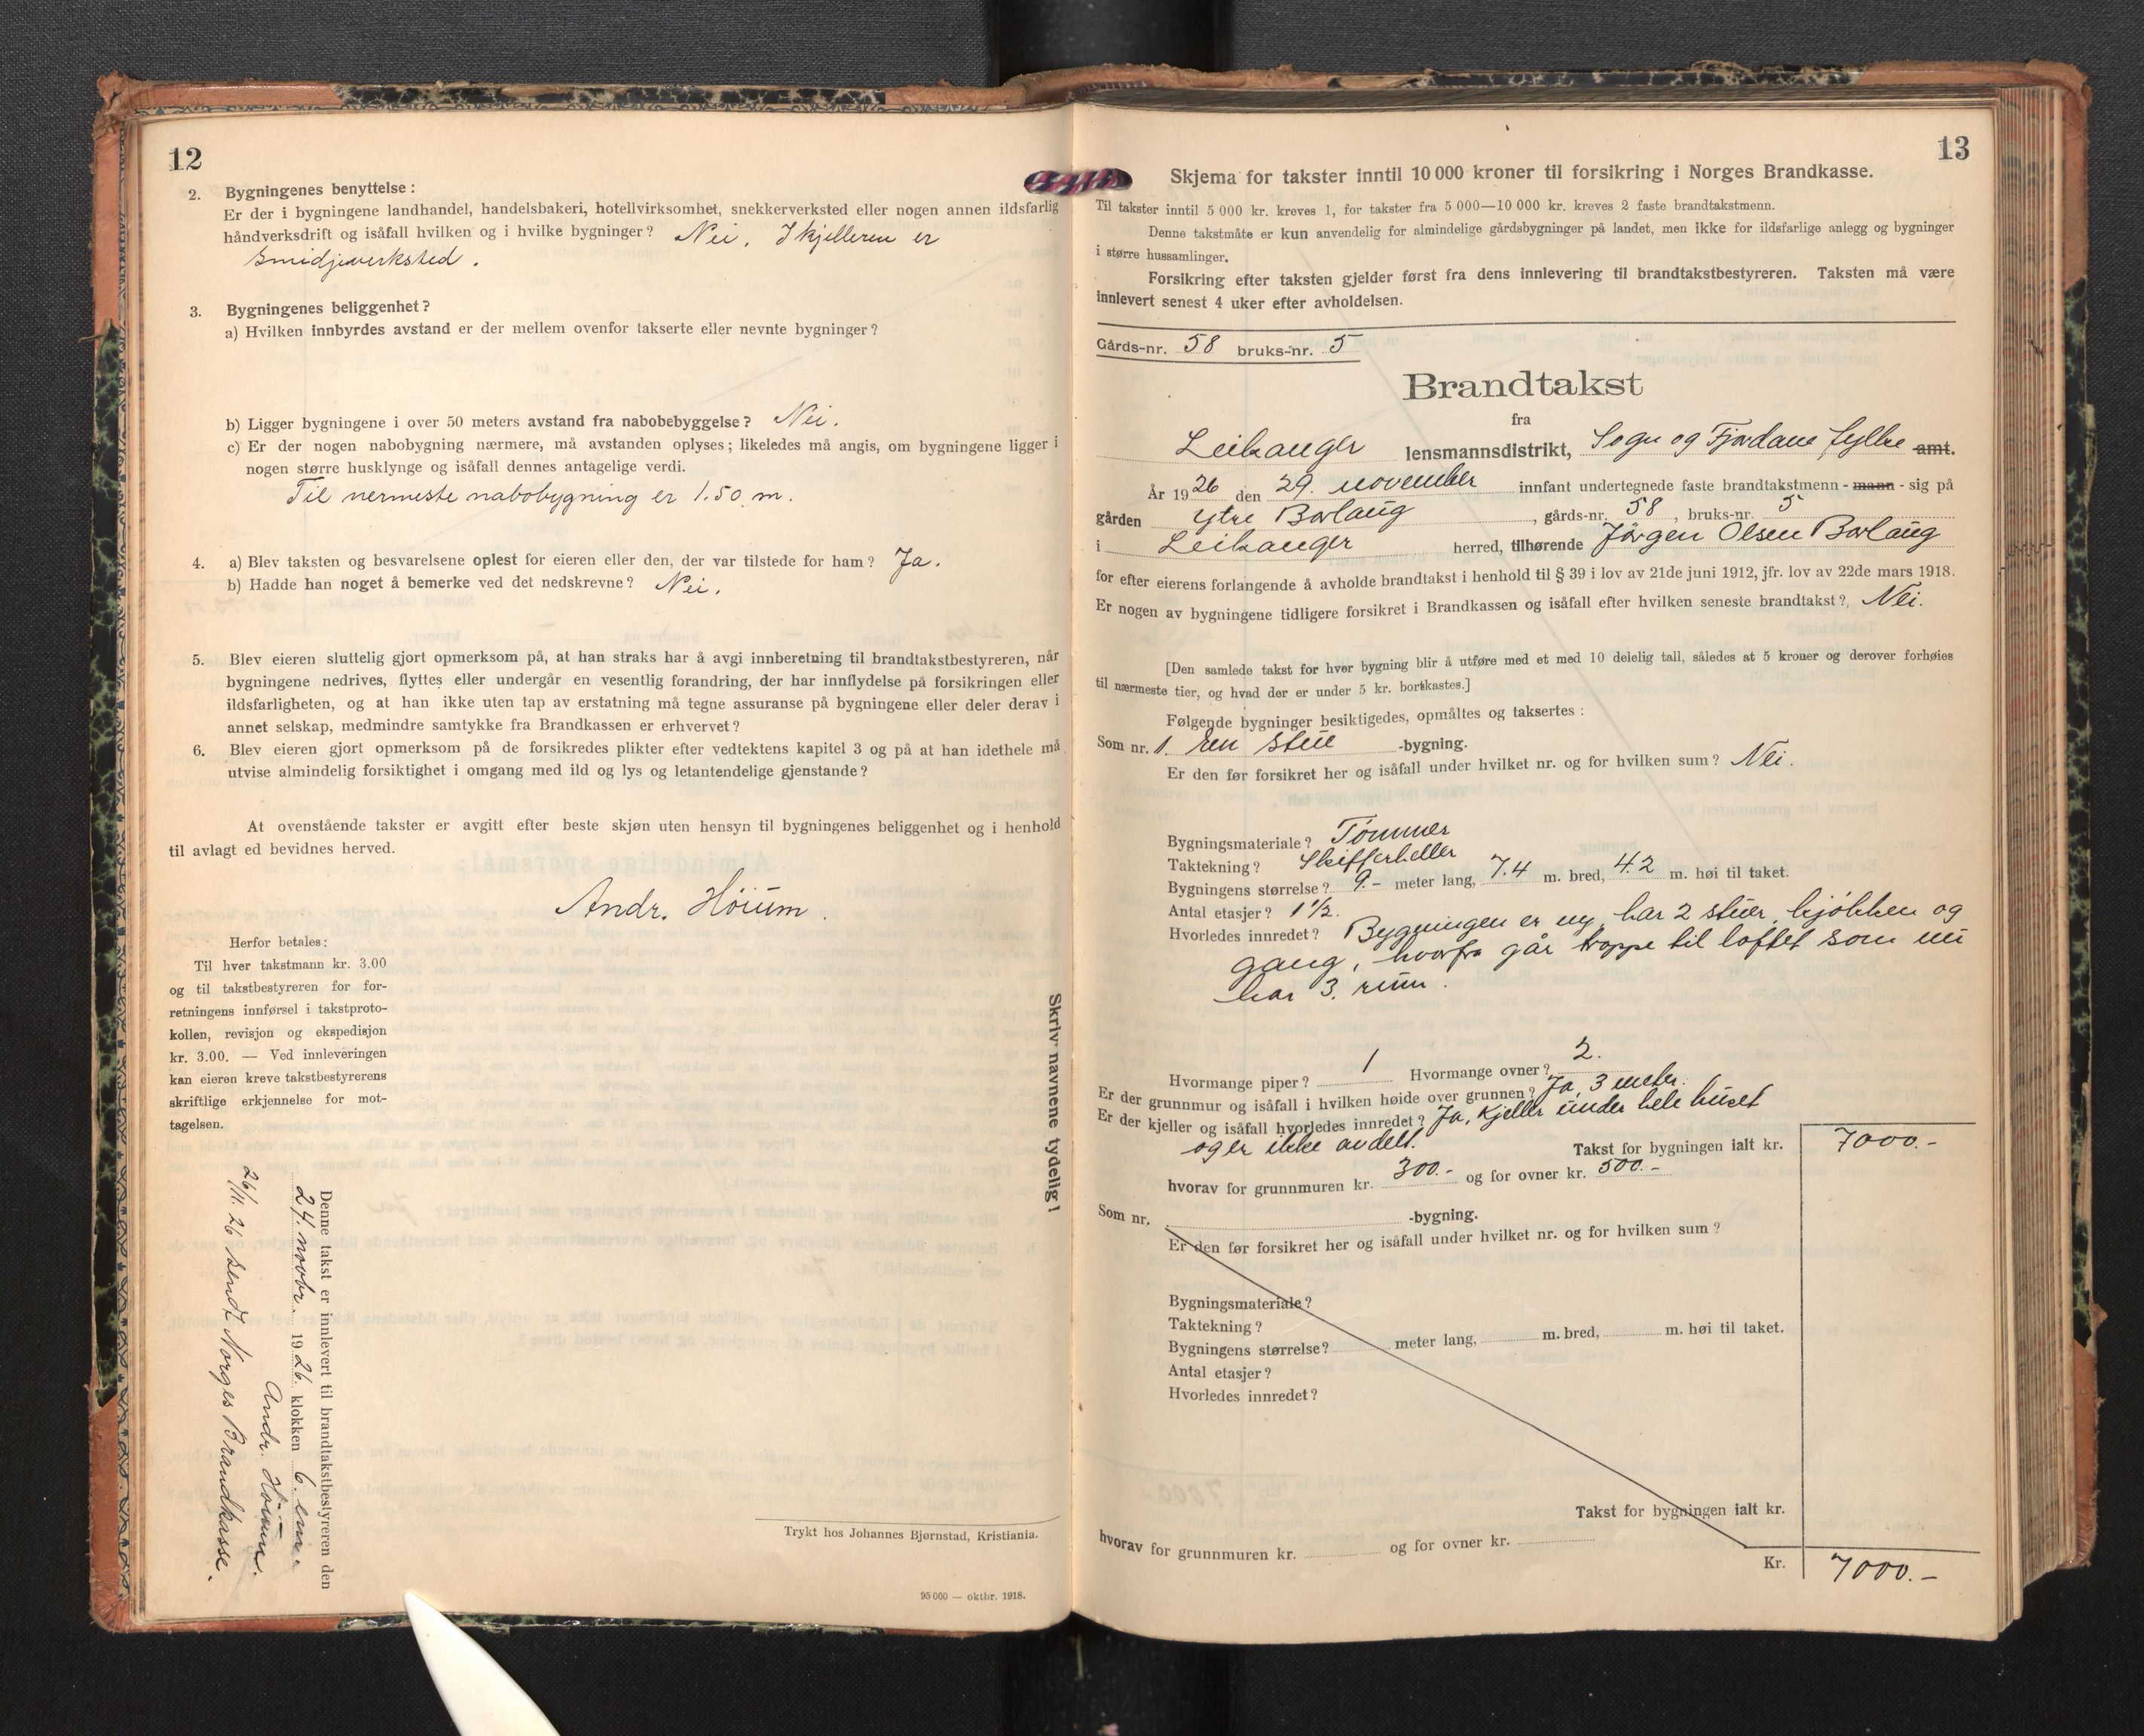 12
2. Bygningenes benyttelse:
Er der i bygningene landhandel, handelsbakeri, hotellvirksomhet, snekkerverksted eller nogen annen ildsfarlig
håndverksdrift og isåfall hvilken og i hvilke bygninger? Nei. I kjelleren er
smidjeverksted.
3. Bygningenes beliggenhet?
a) Hvilken innbyrdes avstand er der mellem ovenfor takserte eller nevnte bygninger?
b) Ligger bygningene i over 50 meters avstand fra nabobebyggelse? Nei.
c) Er der nogen nabobygning nærmere, må avstanden oplyses; likeledes må angis, om bygningene ligger i
nogen større husklynge og isåfall dennes antagelige verdi.
Til nermeste nabobygning er 1.50 m.
4. a) Blev taksten og besvarelsene oplest for eieren eller den, der var tilstede for ham? Ja.
b) Hadde han noget å bemerke ved det nedskrevne? Nei.
5. Blev eieren sluttelig gjort opmerksom på, at han straks har å avgi innberetning til brandtakstbestyreren, når
bygningene nedrives, flyttes eller undergår en vesentlig forandring, der har innflydelse på forsikringen eller
ildsfarligheten, og at han ikke uten tap av erstatning må tegne assuranse på bygningene eller deler derav i
annet selskap, medmindre samtykke fra Brandkassen er erhvervet?
6. Blev eieren gjort opmerksom på de forsikredes plikter efter vedtektens kapitel 3 og på at han idethele må
utvise almindelig forsiktighet i omgang med ild og lys og letantendelige gjenstande?
At ovenstående takster er avgitt efter beste skjøn uten hensyn til bygningenes beliggenhet og i henhold
til avlagt ed bevidnes herved.
Andr. Höium.
Herfor betales:
Til hver takstmann kr. 3.00
og til takstbestyreren for for-
retningens innførsel i takstproto-
kollen, revisjon og ekspedisjon
kr. 3.00. — Ved innleveringen
kan eieren kreve takstbestyrerens
skriftlige erkjennelse for mot-
tagelsen.
Skriv navnene tydelig!
Denne takst er innlevert til brandtakstbestyreren den
24. novbr. 1926. klokken 6. em.
Andr. Höium.
26/11. 26 sendt Norges Brandkasse.
Trykt hos Johannes Bjørnstad, Kristiania.
95 000 — oktbr. 1918.
13
Skjema for takster inntil 10 000 kroner til forsikring i Norges Brandkasse.
Til takster inntil 5 000 kr. kreves 1, for takster fra 5 000—10 000 kr. kreves 2 faste brandtakstmenn.
Denne takstmåte er kun anvendelig for almindelige gårdsbygninger på landet, men ikke for ildsfarlige anlegg og bygninger
i større hussamlinger.
Forsikring efter taksten gjelder først fra dens innlevering til brandtakstbestyreren. Taksten må være
innlevert senest 4 uker efter avholdelsen.
Gårds-nr. 58 bruks-nr. 5
Brandtakst
fra
Leikanger lensmannsdistrikt, Sogn og Fjordane fylke amt.
År 1926 den 29. november innfant undertegnede faste brandtakstmenn - mann - sig på
gården Ytre Borlaug, gårds-nr. 58, bruks-nr. 5
i Leikanger herred, tilhørende Jörgen Olsen Borlaug
for efter eierens forlangende å avholde brandtakst i henhold til § 39 i lov av 21de juni 1912, jfr. lov av 22de mars 1918.
Er nogen av bygningene tidligere forsikret i Brandkassen og isåfall efter hvilken seneste brandtakst? Nei.
[Den samlede takst for hver bygning blir å utføre med et med 10 delelig tall, således at 5 kroner og derover forhøies
til nærmeste tier, og hvad der er under 5 kr. bortkastes.]
Følgende bygninger besiktigedes, opmåltes og taksertes:
Som nr. 1. Een stue -bygning.
Er den før forsikret her og isåfall under hvilket nr. og for hvilken sum? Nei.
Bygningsmateriale? Tömmer
Taktekning? Skifferheller
Bygningens størrelse? 9.- meter lang, 7.4 m. bred, 4.2 m. høi til taket.
Antal etasjer? 1 1/2.
Hvorledes innredet? Bygningen er ny, har 2 stuer, kjökken og
gang, hvorfra går trappe til loftet som nu
har 3. rum.
Hvormange piper? 1 Hvormange ovner? 2.
Er der grunnmur og isåfall i hvilken høide over grunnen? Ja, 3 meter.
Er der kjeller og isåfall hvorledes innredet? Ja, Kjeller under hele huset
og er ikke avdelt.
Takst for bygningen ialt kr. 7000.-
hvorav for grunnmuren kr. 300.- og for ovner kr. 500.-
Som nr. -bygning.
Er den før forsikret her og isåfall under hvilket nr. og for hvilken sum?
Bygningsmateriale?
Taktekning?
Bygningens størrelse? meter lang, m. bred, m. høi til taket.
Antal etasjer?
Hvorledes innredet?
Takst for bygningen ialt kr.
hvorav for grunnmuren kr. og for ovner kr.
Kr. 7000.-